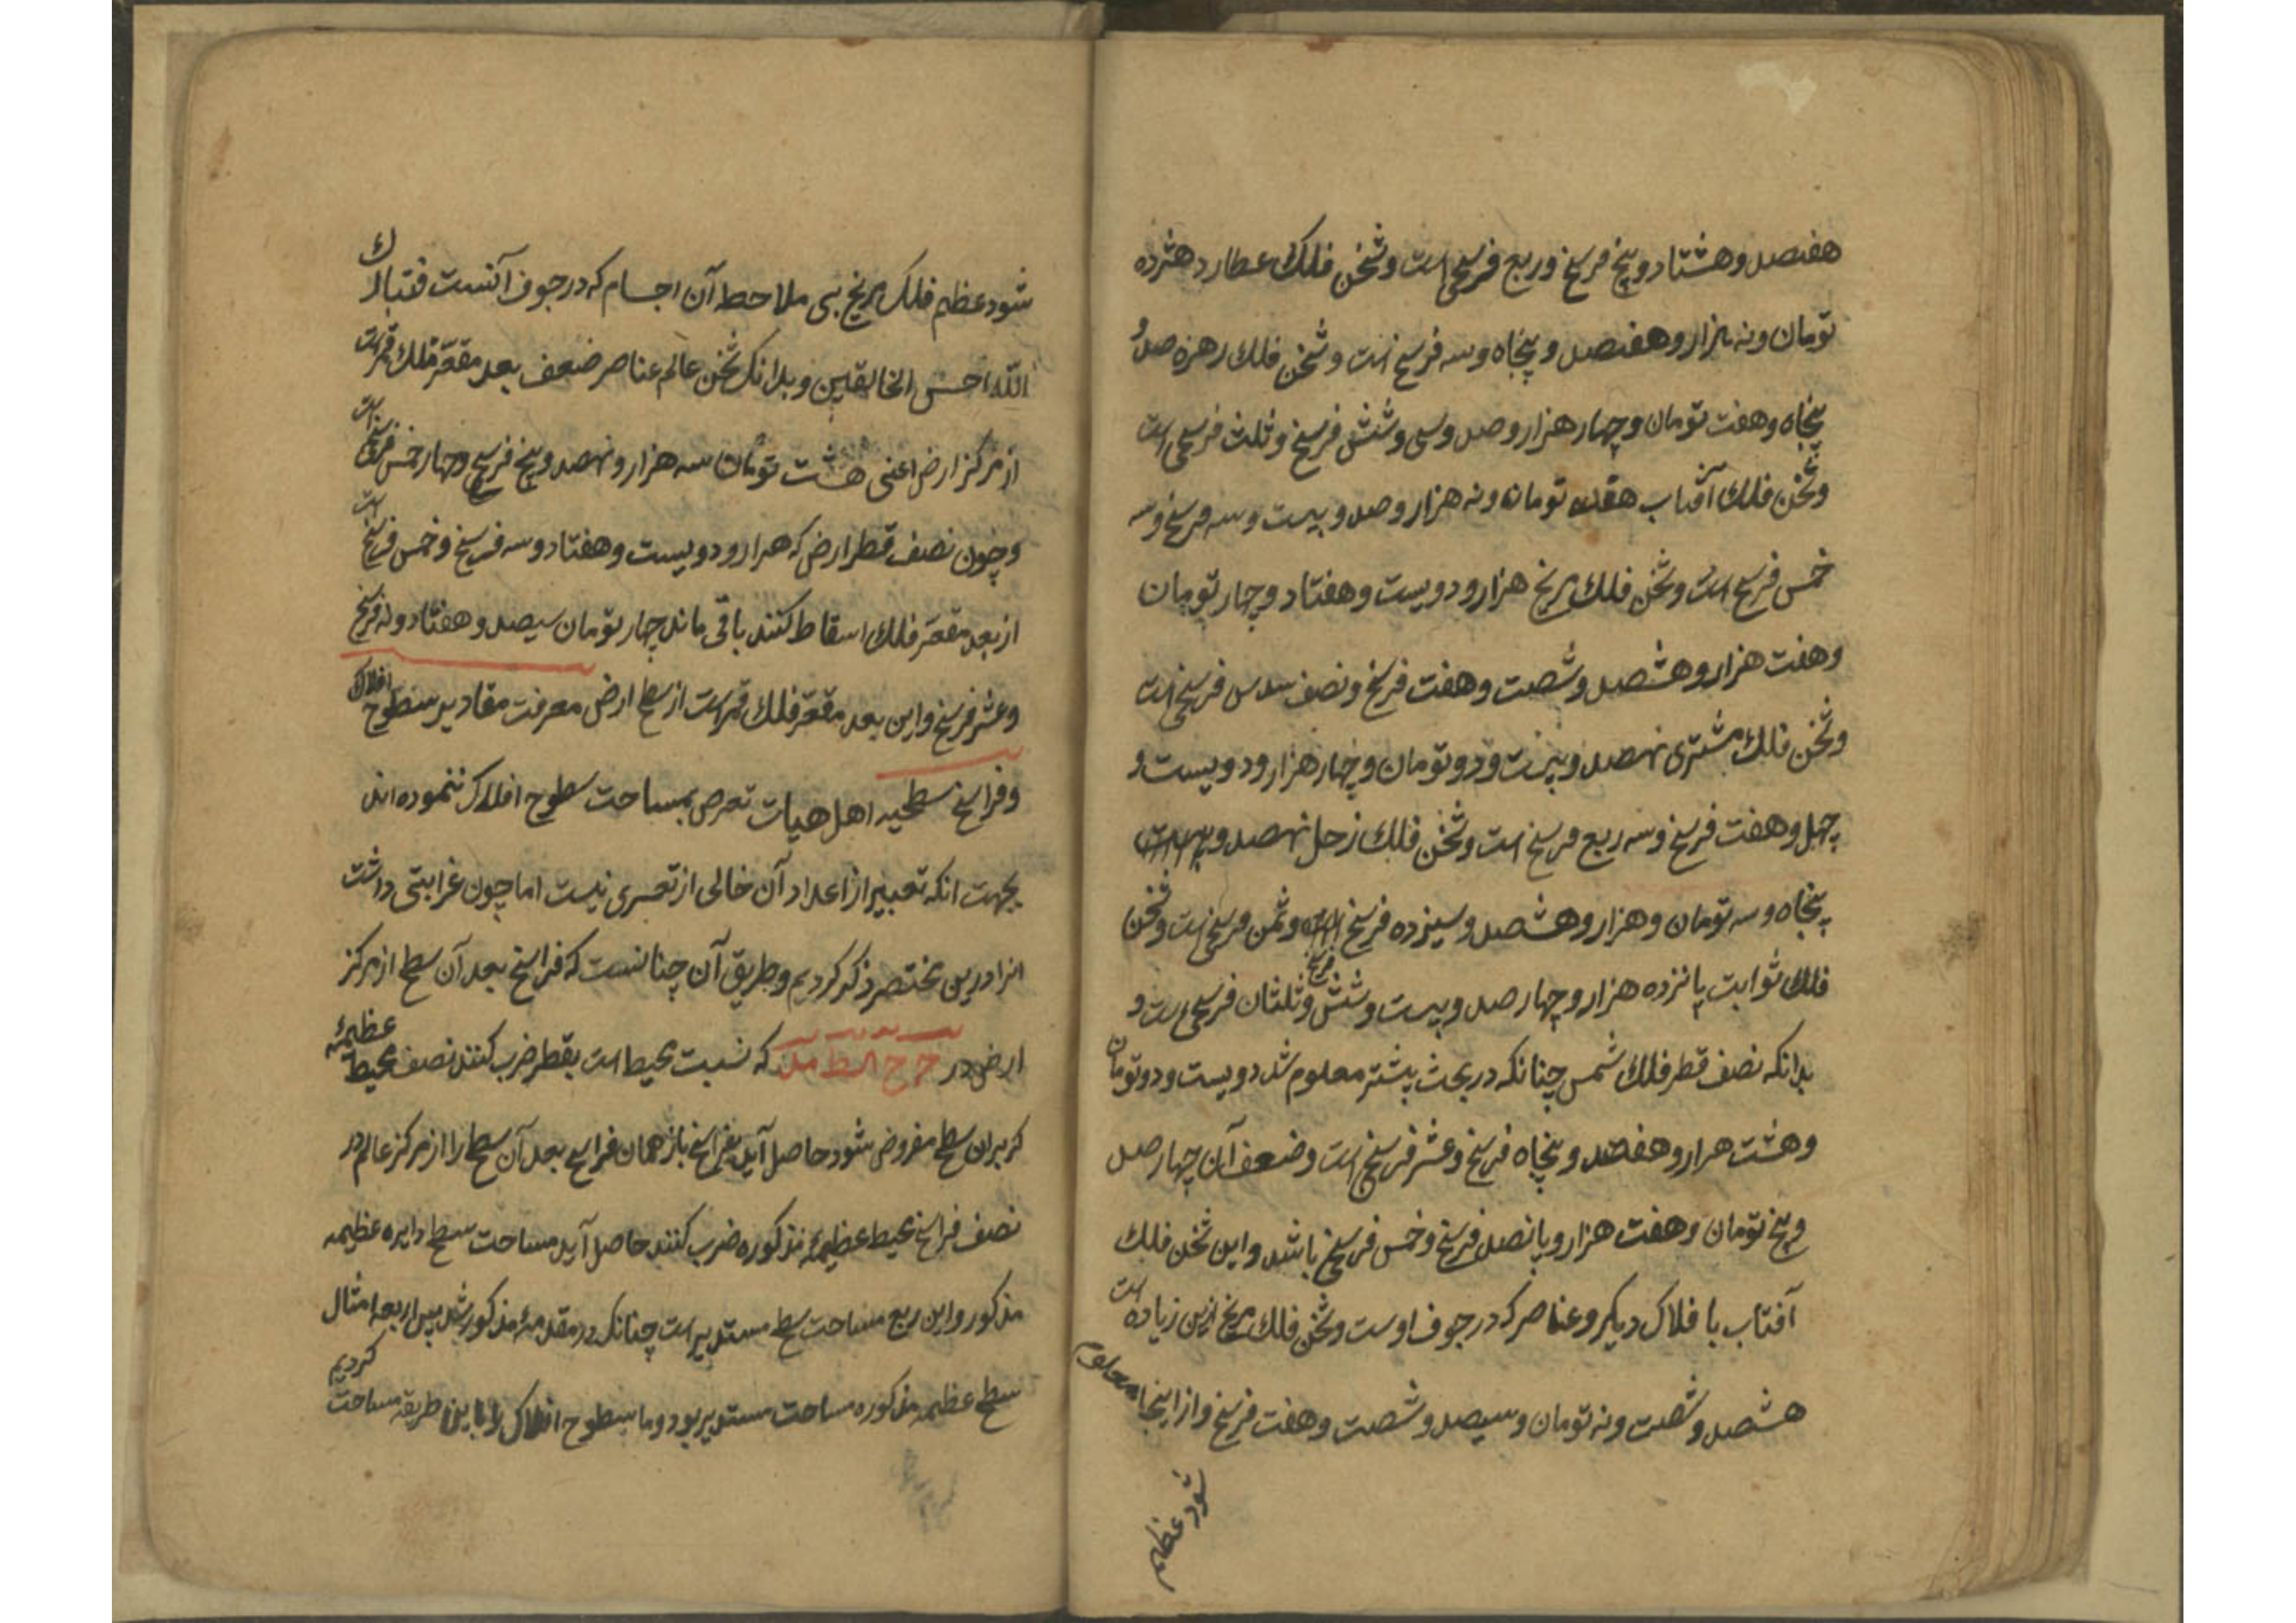 هفتصد و هشتاد و پنج فرسخ و ربع فرسخی است و ثخن فلک عطارد هژده
تومان و نه هزار و هفتصد و پنجاه و سه فرسخ است و ثخن فلک زهره صد و
پنجاه و هفت تومان و چهار هزار و صد و سی و شش فرسخ و ثلث فرسخی است
و ثخن فلک آفتاب هفده تومان و نه هزار و صد و بیست و سه فرسخ و سه
خمس فرسخ است و ثخن فلک مریخ هزار و دویست و هفتاد و چهار تومان
و هفت هزار و هشتصد و شصت و هفت فرسخ و نصف سدس فرسخی است
و ثخن فلک مشتری نهصد و بیست و دو تومان و چهار هزار و دویست و
چهل و هفت فرسخ و سه ربع فرسخ است و ثخن فلک زحل نهصد و
پنجاه و سه تومان و هزار و هشتصد و سیزده فرسخ و ثمن فرسخ است و ثخن
فلک ثوابت پانزده هزار و چهار صد و بیست و شش فرسخ و ثلثان فرسخی است و
بدانکه نصف قطر فلک شمس چنانکه در بحث پیشتر معلوم شد دویست و دو تومان
و هشت هزار و هفتصد و پنجاه فرسخ و عشر فرسخ است و ضعف آن چهار صد
و پنج تومان و هفت هزار و پانصد فرسخ و خمس فرسخ باشد و این ثخن فلک
آفتاب با فلاک دیگر و عناصر که در جوف اوست و ثخن فلک مریخ ازین زیاده است
هشتصد و شصت و نه تومان و سیصد و شصت و هفت فرسخ و از اینجا معلوم
شود عظیم
شود عظیم فلک مریخ بی ملاحظ آن اجسام که در جوف آنست فتبارک
الله احسن الخالقین و بدانک ثخن عالم عناصر ضعف بعد مقعر فلک قمر است
از مرکز ارض اعنی هشت تومان سه هزار و نهصد و پنج فرسخ و چهار خمس فرسخ است
و چون نصف قطر ارض که هزار و دویست و هفتاد و سه فرسخ و خمس فرسخ است
از بعد مقعر فلک اسقاط کنند باقی ماند چهار تومان سیصد و هفتاد و نه فرسخ
و عشر فرسخ و این بعد مقعر فلک قمر است از سطح ارض معرفت مقادیر سطوح افلاک
و فراسخ سطحیه اهل هیات تعرض بمساحت سطوح افلاک ننموده اند
بجهت انکه تعبیر از اعداد آن خالی از تعسری نیست اما چون غرابتی داشت
انرا درین مختصر ذکر کردیم و طریق آن چنانست که فراسخ بعد آن سطح از مرکز
ارض در ح ح الط مد که نسبت محیط است بقطر ضرب کنند نصف محیط عظیمهٔ
که بران سطح مفروض شود حاصل آید بفراسخ باز همان فراسخ بعد آن سطح را از مرکز عالم در
نصف فراسخ محیط عظیمهٔ مذکوره ضرب کنند حاصل آید مساحت سطح دایره عظیمه
مذکور و این ربع مساحت سطح مستدیر است چنانک در مقدمهٔ مذکور شد پس اربعه امثال
سطح عظیمه مذکوره مساحت مستدیر بود و ما سطوح افلاک را باین طریقه مساحت کردیم